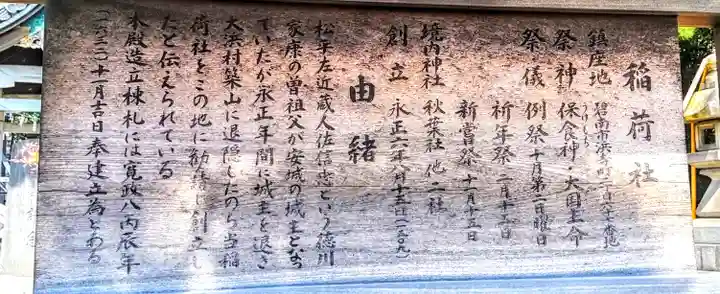 稲荷社
鎮座地 碧南市浜寺町二丁目六十番地
うけもち
祭神 保食神・大国主命
祭儀 例祭 十月第二日曜日
祈年祭 二月十五日
新嘗祭 十一月十五日
境内神社 秋葉社他二社
創立 永正六年八月十五日(一五〇九)
由緒
松平左近蔵人佐信忠という徳川
家康の曽祖父が安城の城主となっ
ていたが永正年間に城主を退き
大浜村築山に退隠したのち当稲
荷社をこの地に勧請し創立し
たと伝えられている
本殿造立棟札には寛政八丙辰年
十月吉日奉建立為とある